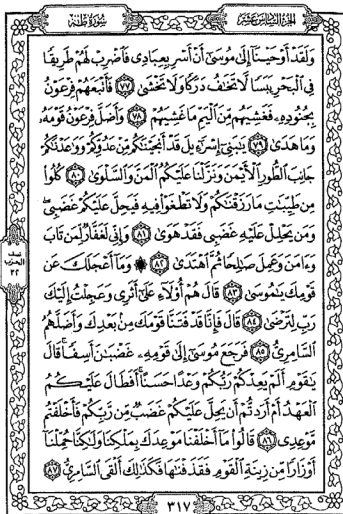 الجزء السادس عشر
سورة طه
وَلَقَدْ أَوْحَيْنَا إِلَىٰ مُوسَىٰ أَنْ أَسْرِ بِعِبَادِى فَاضْرِبْ لَهُمْ طَرِيقًا
فِى الْبَحْرِ يَبَسًا لَّا تَخَٰفُ دَرَكًا وَلَا تَخْشَىٰ ٧٧ فَأَتْبَعَهُمْ فِرْعَوْنُ
بِجُنُودِهِۦ فَغَشِيَهُم مِّنَ الْيَمِّ مَا غَشِيَهُمْ ٧٨ وَأَضَلَّ فِرْعَوْنُ قَوْمَهُۥ
وَمَا هَدَىٰ ٧٩ يَٰبَنِىٓ إِسْرَٰٓءِيلَ قَدْ أَنجَيْنَٰكُم مِّنْ عَدُوِّكُمْ وَوَٰعَدْنَٰكُمْ
جَانِبَ الطُّورِ الْأَيْمَنَ وَنَزَّلْنَا عَلَيْكُمُ الْمَنَّ وَالسَّلْوَىٰ ٨٠ كُلُوا
مِن طَيِّبَٰتِ مَا رَزَقْنَٰكُمْ وَلَا تَطْغَوْا فِيهِ فَيَحِلَّ عَلَيْكُمْ غَضَبِى
وَمَن يَحْلِلْ عَلَيْهِ غَضَبِى فَقَدْ هَوَىٰ ٨١ وَإِنِّى لَغَفَّارٌ لِّمَن تَابَ
وَءَامَنَ وَعَمِلَ صَٰلِحًا ثُمَّ اهْتَدَىٰ ٨٢ ۞ وَمَآ أَعْجَلَكَ عَن
قَوْمِكَ يَٰمُوسَىٰ ٨٣ قَالَ هُمْ أُو۟لَآءِ عَلَىٰٓ أَثَرِى وَعَجِلْتُ إِلَيْكَ
رَبِّ لِتَرْضَىٰ ٨٤ قَالَ فَإِنَّا قَدْ فَتَنَّا قَوْمَكَ مِنۢ بَعْدِكَ وَأَضَلَّهُمُ
السَّامِرِىُّ ٨٥ فَرَجَعَ مُوسَىٰٓ إِلَىٰ قَوْمِهِۦ غَضْبَٰنَ أَسِفًا قَالَ
يَٰقَوْمِ أَلَمْ يَعِدْكُمْ رَبُّكُمْ وَعْدًا حَسَنًا أَفَطَالَ عَلَيْكُمُ
الْعَهْدُ أَمْ أَرَدتُّمْ أَن يَحِلَّ عَلَيْكُمْ غَضَبٌ مِّن رَّبِّكُمْ فَأَخْلَفْتُم
مَّوْعِدِى ٨٦ قَالُوا مَآ أَخْلَفْنَا مَوْعِدَكَ بِمَلْكِنَا وَلَٰكِنَّا حُمِّلْنَآ
أَوْزَارًا مِّن زِينَةِ الْقَوْمِ فَقَذَفْنَٰهَا فَكَذَٰلِكَ أَلْقَى السَّامِرِىُّ ٨٧
نصف
الحزب
٣٢
٣١٧